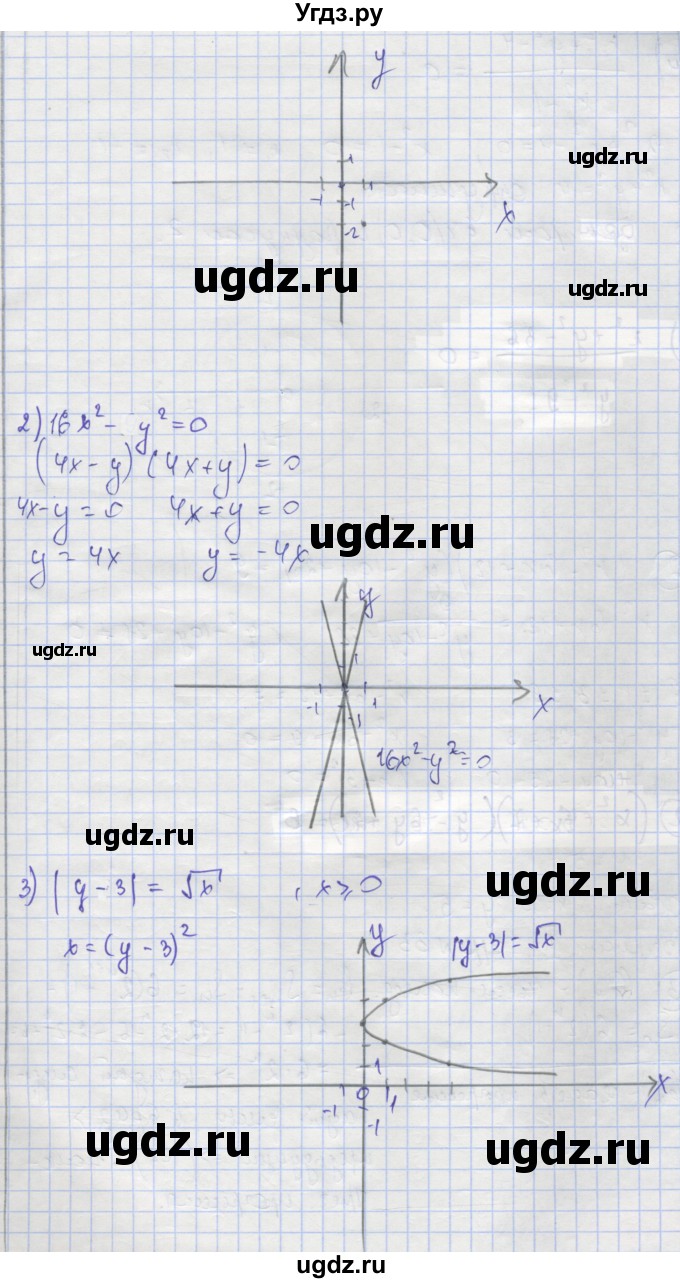 Угдз.ру
y
ugdz.ru
1
-1 1
-1
x
-2
ugdz.ru
ugdz.ru
2) 16x² - y² = 0
(4x - y) (4x + y) = 0
4x - y = 0 4x + y = 0
ugdz.ru
y = 4x y = -4x
y
ugdz.ru
1
-1 1
x
-1
16x² - y² = 0
ugdz.ru
3) |y - 3| = √x , x ⩾ 0
ugdz.ru
x = (y - 3)²
y
|y - 3| = √x
1
x
-1 0 1
-1
ugdz.ru
ugdz.ru
ugdz.ru